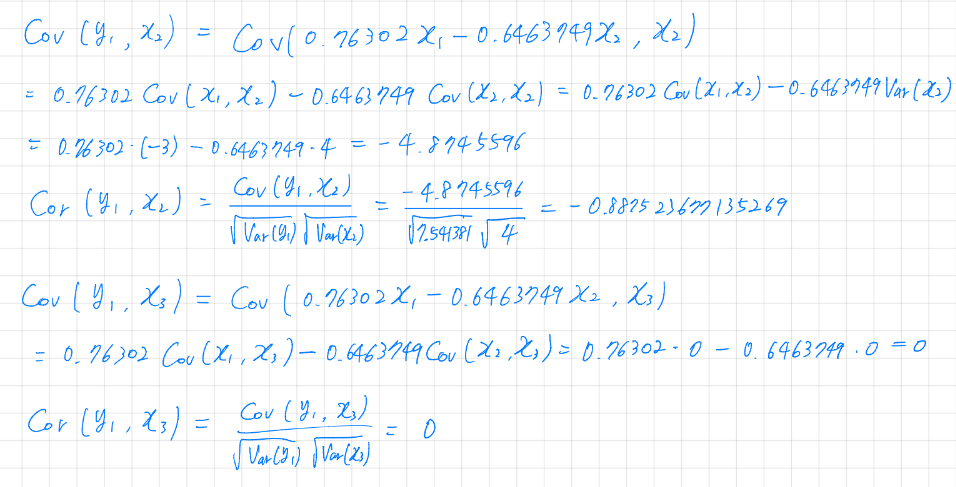 Cov (y₁, x₂) = Cov( 0.76302 x₁ - 0.6463749 x₂ , x₂)
= 0.76302 Cov (x₁, x₂) - 0.6463749 Cov (x₂, x₂) = 0.76302 Cov (x₁, x₂) - 0.6463749 Var (x₂)
= 0.76302 · (-3) - 0.6463749 · 4 = - 4.8745596
Cor (y₁, x₂) = Cov (y₁, x₂) / √Var(y₁) √Var(x₂) = -4.8745596 / √7.541381 √4 = - 0.887523677135269
Cov (y₁, x₃) = Cov ( 0.76302 x₁ - 0.6463749 x₂ , x₃)
= 0.76302 Cov (x₁, x₃) - 0.6463749 Cov (x₂, x₃) = 0.76302 · 0 - 0.6463749 · 0 = 0
Cor (y₁, x₃) = Cov (y₁, x₃) / √Var(y₁) √Var(x₃) = 0